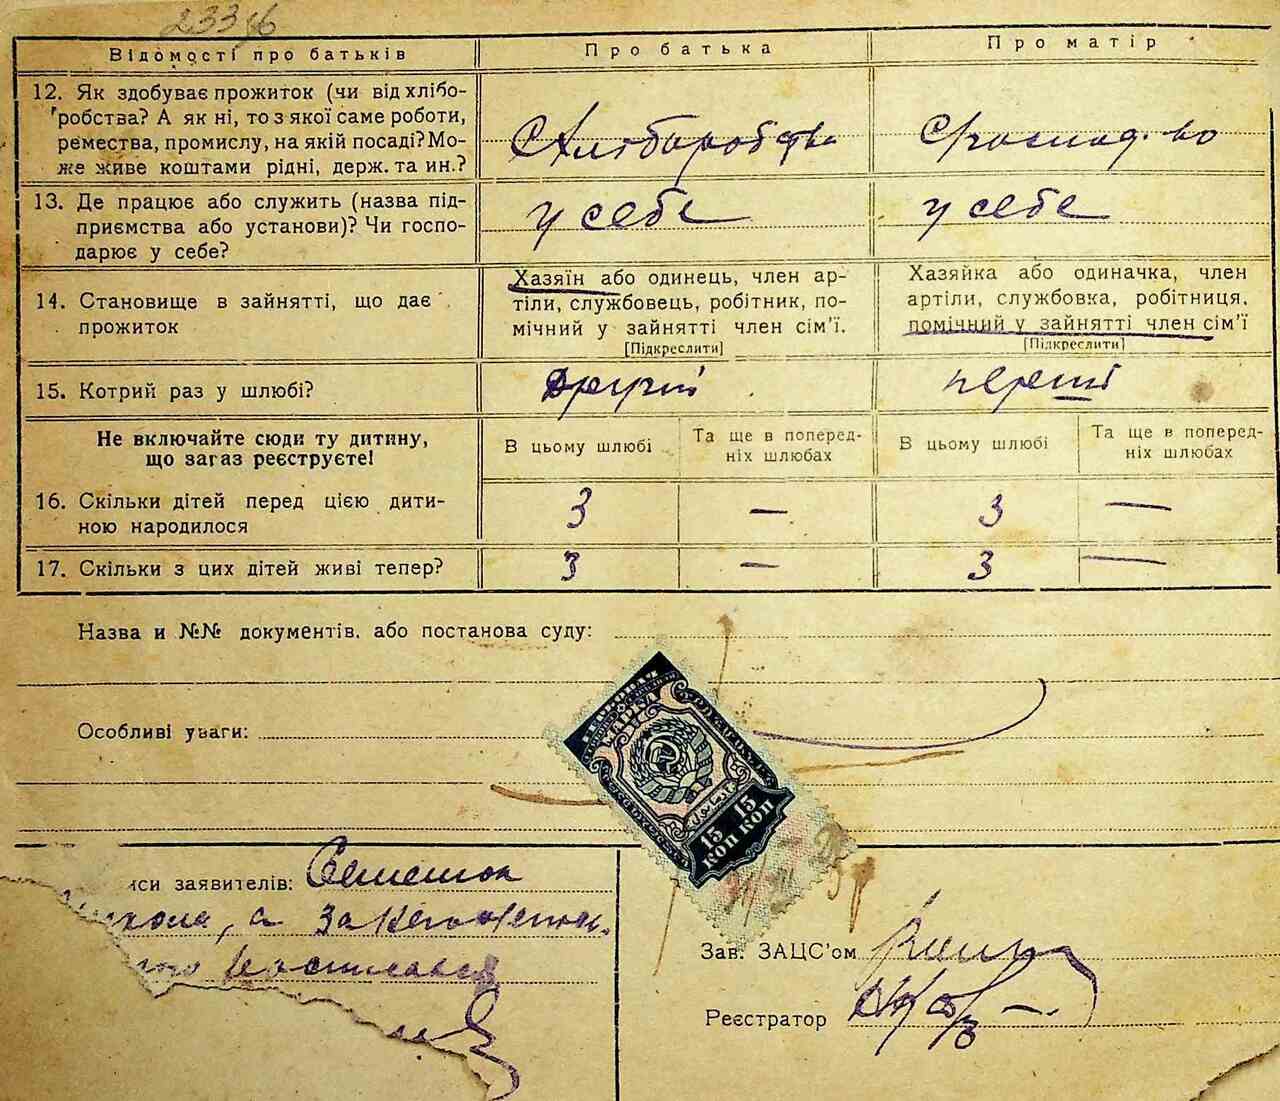 Відомості про батьків
Про батька
Про матір
12. Як здобуває прожиток (чи від хлібо-
робства? А як ні, то з якої саме роботи,
ремества, промислу, на якій посаді? Мо-
же живе коштами рідні, держ. та ин.?
Хліборобство
13. Де працює або служить (назва під-
приємства або установи)? Чи госпо-
дарює у себе?
у себе
у себе
14. Становище в зайнятті, що дає
прожиток
Хазяїн або одинець, член ар-
тіли, службовець, робітник, по-
мічний у зайнятті член сім'ї.
[Підкреслити]
Хазяйка або одиначка, член
артіли, службовка, робітниця,
помічний у зайнятті член сім'ї
[Підкреслити]
15. Котрий раз у шлюбі?
другий
перший
Не включайте сюди ту дитину,
що загаз реєструєте!
В цьому шлюбі
Та ще в поперед-
ніх шлюбах
В цьому шлюбі
Та ще в поперед-
ніх шлюбах
16. Скільки дітей перед цією дити-
ною народилося
3 — 3 —
17. Скільки з цих дітей живі тепер?
3 — 3 —
Назва и №№ документів, або постанова суду:
Особливі уваги:
МАРКА
15 15
КОП КОП
иси заявителів:
Зав. ЗАЦС'ом
Реєстратор